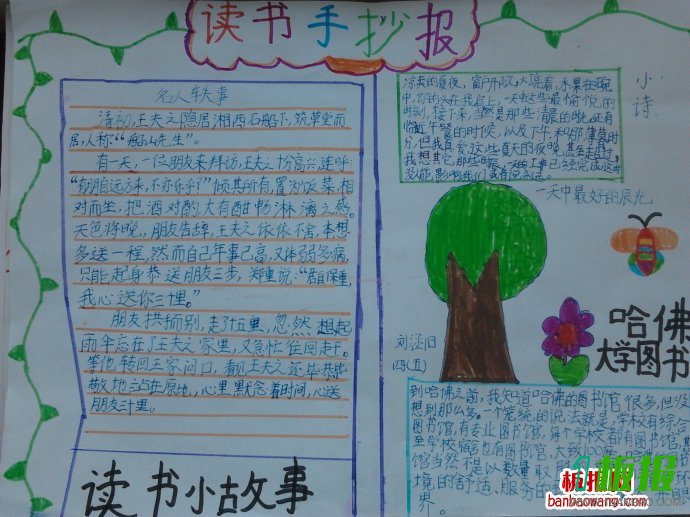 读书手抄报
名人轶事
清初,王夫之隐居湘西石船下,筑草堂而
居,人称“船山先生”。
有一天,一位朋友来拜访,王夫之十分高兴,连呼
“有朋自远方来,不亦乐乎!”倾其所有,置为饭菜,相
对而坐,把酒对酌,大有酣畅淋漓之感。
天色将晚,朋友告辞,王夫之依依不舍,本想
多送一程,然而自己年事已高,又体弱多病,
只能起身恭送朋友三步,郑重说:“君自保重,
我心送你三里。”
朋友拱手而别,走了十五里,忽然想起
雨伞后在了王夫之家里,又急忙往回走于。
等他转回王家门口,看见王夫之还毕恭毕
敬地站在原地,心里默念着时间,心送
朋友三里。
读书小故事
小诗
凉爽的夏夜,窗户开敞,大亮着,水果在碗
中,你的头在我肩上,一天中这些最愉悦的
时刻,接下来,当然是那些清晨的时光,还有
临近午餐的时候,以及下午和那薄暮时
分,但我真爱这些夏天的夜晚,甚至超过,
我想其它那些时
一天中最好的辰光
四(五)
哈佛
大学图书
到哈佛之前,我知道哈佛的图书馆很多,但没
想到那么多。一个笼统的说法就是,学校有综合
图书馆,有专业图书馆,每个学校都有图书馆,
至学校宿舍也有图书馆,大致100
馆当然不是以数量取
境的舒适,服务的
界。
板报网
banbaowang.com
板报